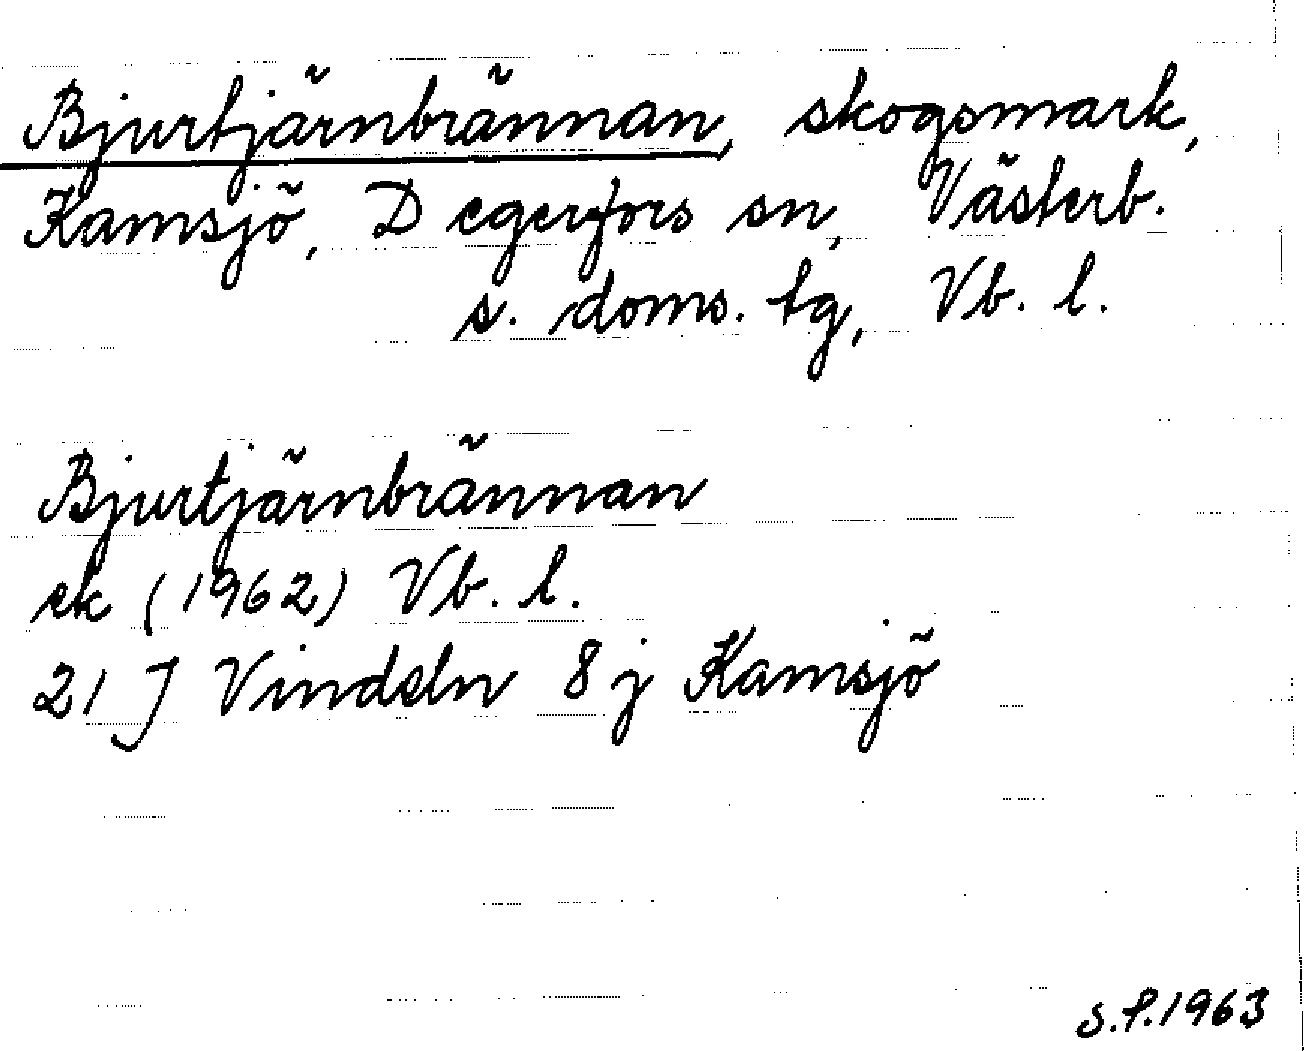 Bjurtjärnbrännan, skogsmark,
Kamsjö, Degerfors sn, Västerb.
s. doms. tg, Vb. l.
Bjurtjärnbrännan
ek (1962) Vb. l.
21 J Vindeln 8 j Kamsjö
S.P.1963